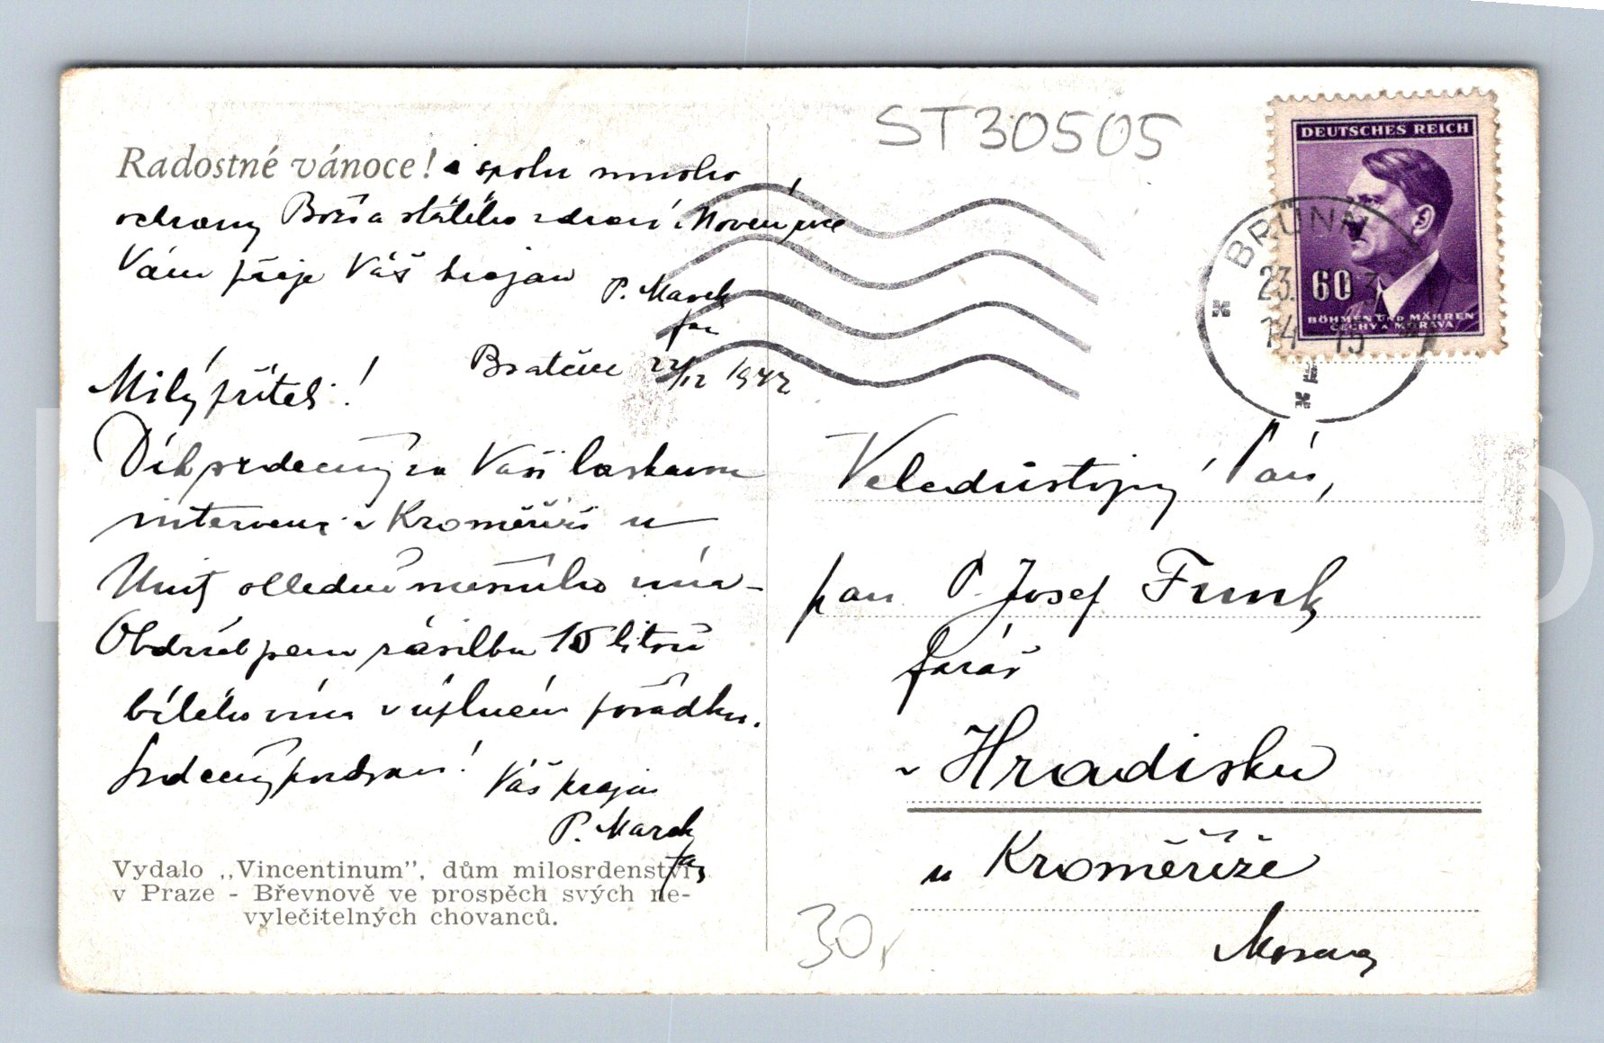 ST30505
Radostné vánoce! a spolu mnoho
ochrany Boží a stálého zdraví v Novém roce
Vám přeje Váš krajan
P. Marek
far
Bratčice 22/12 1942
Milý příteli!
Dík srdečný za Vaši laskavou
intervenci v Kroměříži u
ohledně mešního vína
Obdržel jsem zásilku 10 litrů
bílého vína v úplném pořádku.
Srdečný pozdrav! Váš krajan
P. Marek
far
Vydalo ,,Vincentinum", dům milosrdenství
v Praze - Břevnově ve prospěch svých ne-
vylečitelných chovanců.
DEUTSCHES REICH
60
BÖHMEN UND MÄHREN
ČECHY A MORAVA
BRÜNN
23.
14 - 15
Veledůstojný Pán,
pan P. Josef Funk
farář
v Hradisku
u Kroměříže
Morava
30,